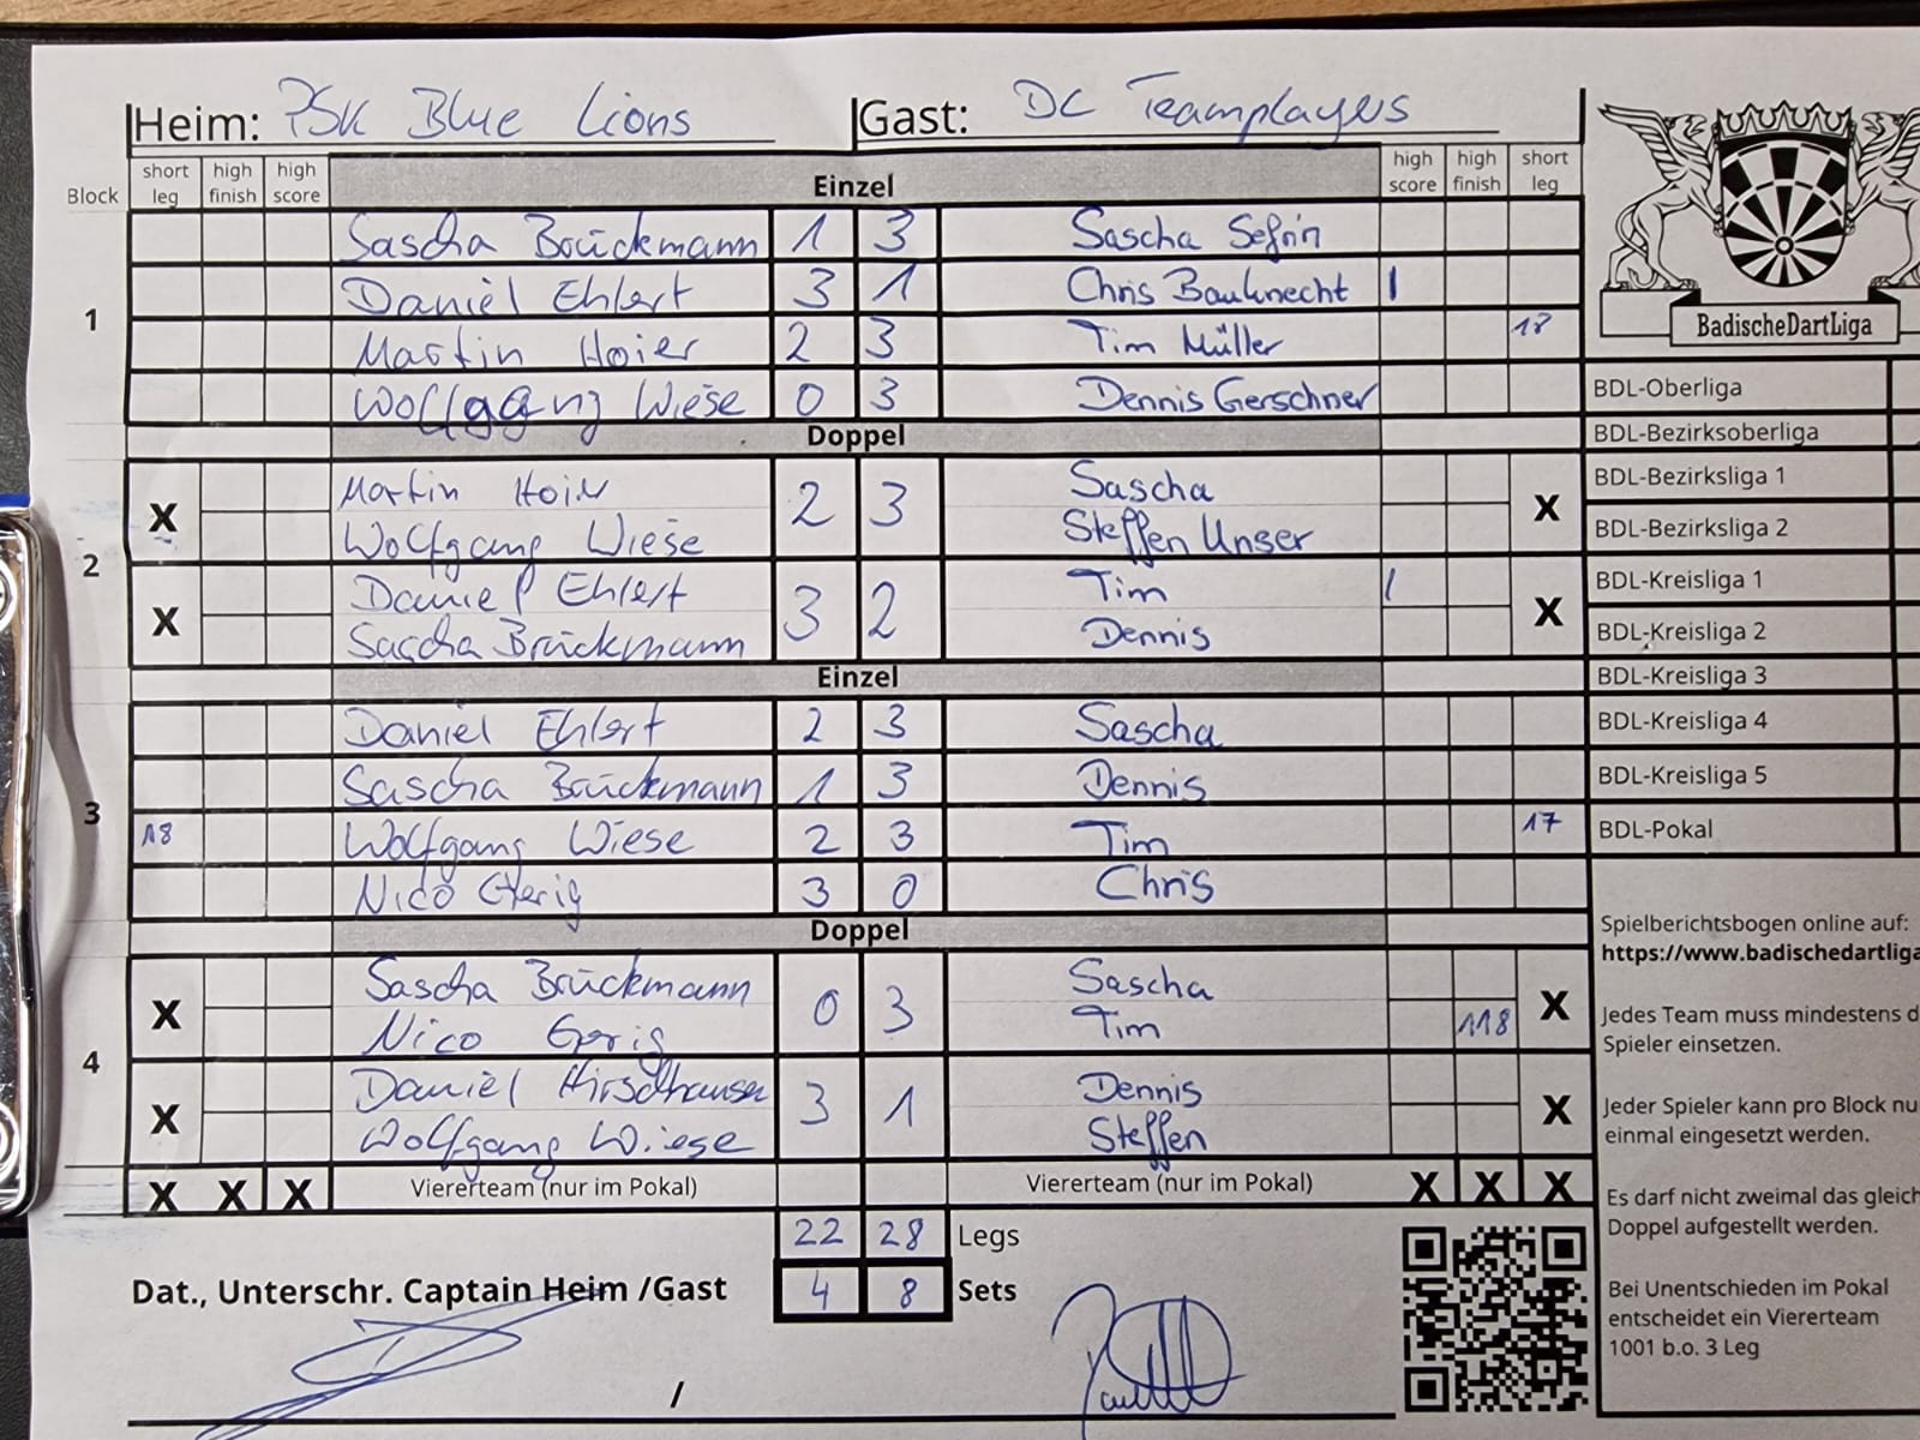 Heim: PSK Blue Lions Gast: DC Teamplayers
Block short leg high finish high score Einzel high score high finish short leg
Sascha Brückmann 1 3 Sascha Sefrin
Daniel Ehlert 3 1 Chris Bauknecht I
1 Martin Hoier 2 3 Tim Müller 18
Wolfgang Wiese 0 3 Dennis Gerschner
Doppel
Martin Hoier 2 3 Sascha
X Wolfgang Wiese Steffen Unser X
2
Daniel Ehlert 3 2 Tim I
X Sascha Brückmann Dennis X
Einzel
Daniel Ehlert 2 3 Sascha
Sascha Brückmann 1 3 Dennis
3
18 Wolfgang Wiese 2 3 Tim 17
Nico Gerig 3 0 Chris
Doppel
Sascha Brückmann 0 3 Sascha
X Nico Gerig Tim 118 X
4
Daniel Hirschhauser 3 1 Dennis
X Wolfgang Wiese Steffen X
X X X Viererteam (nur im Pokal) Viererteam (nur im Pokal) X X X
22 28 Legs
Dat., Unterschr. Captain Heim /Gast 4 8 Sets
/
BadischeDartLiga
BDL-Oberliga
BDL-Bezirksoberliga
BDL-Bezirksliga 1
BDL-Bezirksliga 2
BDL-Kreisliga 1
BDL-Kreisliga 2
BDL-Kreisliga 3
BDL-Kreisliga 4
BDL-Kreisliga 5
BDL-Pokal
Spielberichtsbogen online auf:
https://www.badischedartliga
Jedes Team muss mindestens d
Spieler einsetzen.
Jeder Spieler kann pro Block nu
einmal eingesetzt werden.
Es darf nicht zweimal das gleich
Doppel aufgestellt werden.
Bei Unentschieden im Pokal
entscheidet ein Viererteam
1001 b.o. 3 Leg